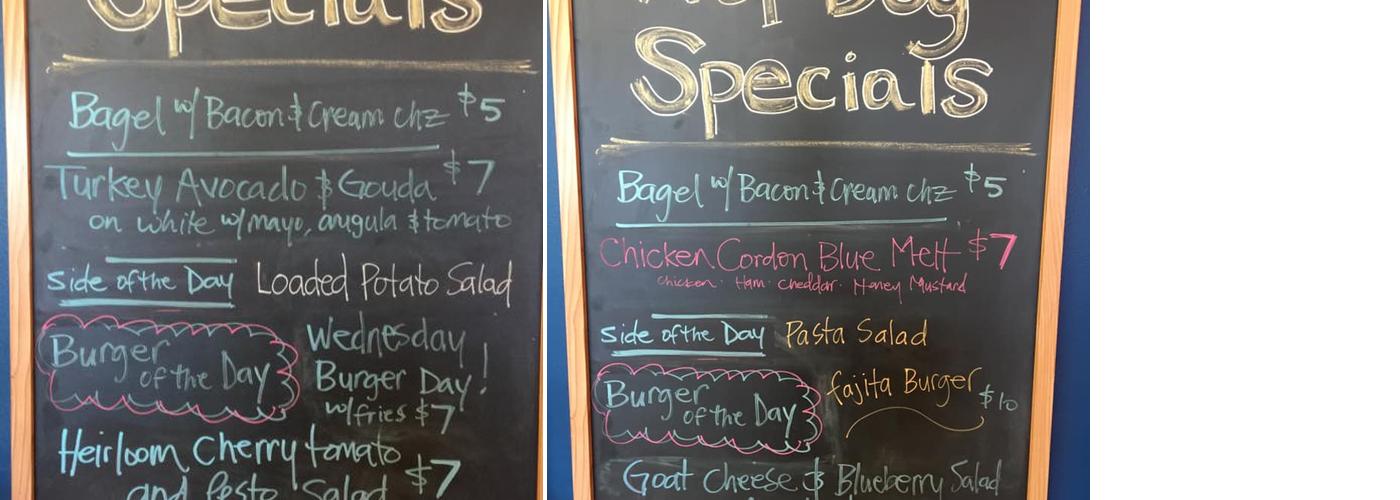 Specials
Bagel w/ Bacon & Cream chz $5
Turkey Avocado & Gouda $7
on white w/ mayo, arugula & tomato
Side of the Day Loaded Potato Salad
Burger of the Day
Wednesday
Burger Day!
w/ fries $7
Heirloom Cherry tomato
and Pesto Salad $7
Day
Specials
Bagel w/ Bacon & Cream chz $5
Chicken Cordon Blue Melt $7
Chicken · Ham · Cheddar · Honey Mustard
Side of the Day Pasta Salad
Burger
of the Day
fajita Burger $10
Goat Cheese & Blueberry Salad